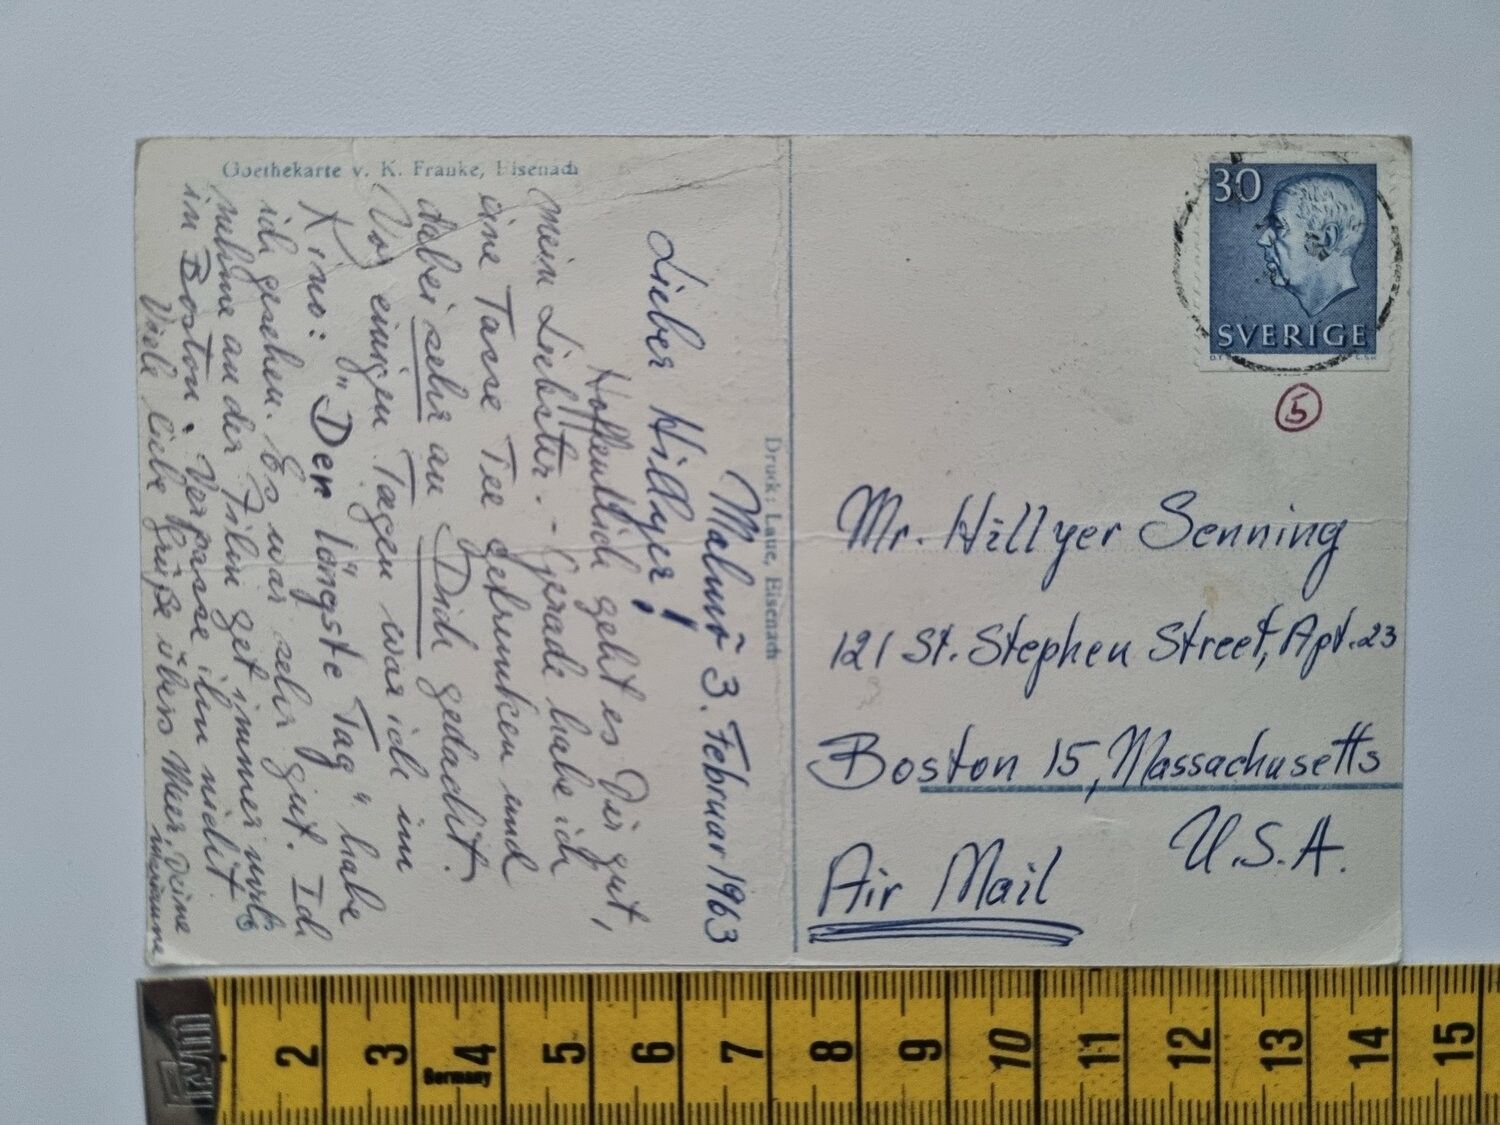 Goethekarte v. K. Franke, Eisenach
Malmö 3. Februar 1963
Lieber Hillyer!
Hoffentlich geht es Dir gut,
mein Liebster. - Gerade habe ich
eine Tasse Tee getrunken und
dabei sehr an Dich gedacht.
Vor einigen Tagen war ich im
Kino: "Der längste Tag" habe
ich gesehen. Es war sehr gut. Ich
nehme an der Film get immer noch
in Boston. Verpasse ihn nicht.
Viele liebe Grüße übers Meer. Deine
Marianne
Druck: Laue, Eisenach
30
SVERIGE
5
Mr. Hillyer Senning
121 St. Stephen Street, Apt. 23
Boston 15, Massachusetts
U.S.A.
Air Mail
2 3 4 5 6 7 8 9 10 11 12 13 14 15
Germany